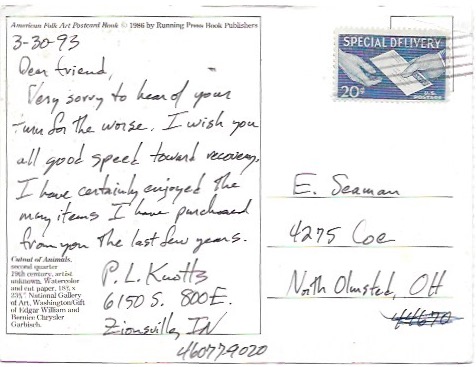 American Folk Art Postcard Book © 1986 by Running Press Book Publishers
3-30-93
Dear friend,
Very sorry to hear of your
turn for the worse. I wish you
all good speed toward recovery.
I have certainly enjoyed the
many items I have purchased
from you the last few years.
P. L. Knotts
6150 S. 800 E.
Zionsville, IN
460779020
Cutout of Animals,
second quarter
19th century, artist
unknown. Watercolor
and cut paper,
National Gallery
of Art, Washington/Gift
of Edgar William and
Bernice Chrysler
Garbisch.
SPECIAL DELIVERY
20¢
U.S.
POSTAGE
E. Seaman
4275 Coe
North Olmsted, OH
44670